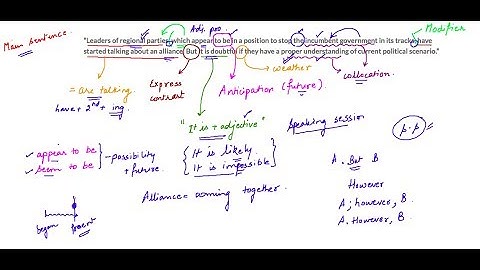 Adj. pro.
Modifier
Main sentence.
"Leaders of regional parties which appear to be in a position to stop the incumbent government in its tracks have
started talking about an alliance. But it is doubtful if they have a proper understanding of current political scenario."
= are talking.
have + 2nd + ing.
Express
contrast
weather
Anticipation (future).
collocation.
"It is + adjective"
Speaking session
P.P
appear to be
seem to be
- possibility
+ future.
It is likely.
It is impossible
A. But B
However
A; however, B
A. However, B.
Alliance = coming together.
began present